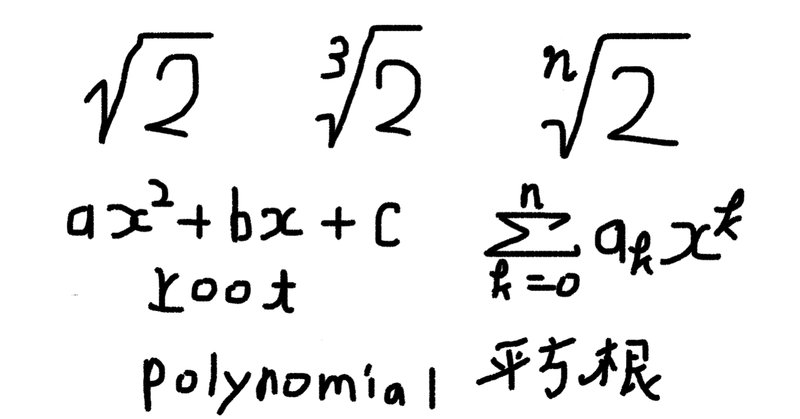 √2 ∛2 ⁿ√2
ax²+bx+c
n
∑ aₖxᵏ
k=0
root
polynomial 平方根